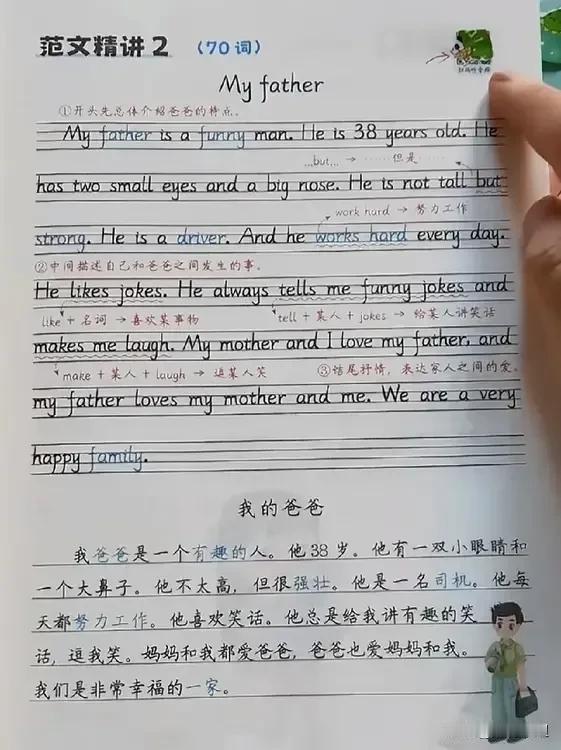 范文精讲2 (70词)
My father
①开头先总体介绍爸爸的特点。
My father is a funny man. He is 38 years old. He
...but... → ······但是······
has two small eyes and a big nose. He is not tall but
work hard → 努力工作
strong. He is a driver. And he works hard every day.
②中间描述自己和爸爸之间发生的事。
He likes jokes. He always tells me funny jokes and
like + 名词 → 喜欢某事物 tell + 某人 + jokes → 给某人讲笑话
makes me laugh. My mother and I love my father, and
make + 某人 + laugh → 逗某人笑 ③结尾抒情，表达家人之间的爱。
my father loves my mother and me. We are a very
happy family.
我的爸爸
我爸爸是一个有趣的人。他38岁。他有一双小眼睛和
一个大鼻子。他不太高，但很强壮。他是一名司机。他每
天都努力工作。他喜欢笑话。他总是给我讲有趣的笑
话，逗我笑。妈妈和我都爱爸爸，爸爸也爱妈妈和我。
我们是非常幸福的一家。